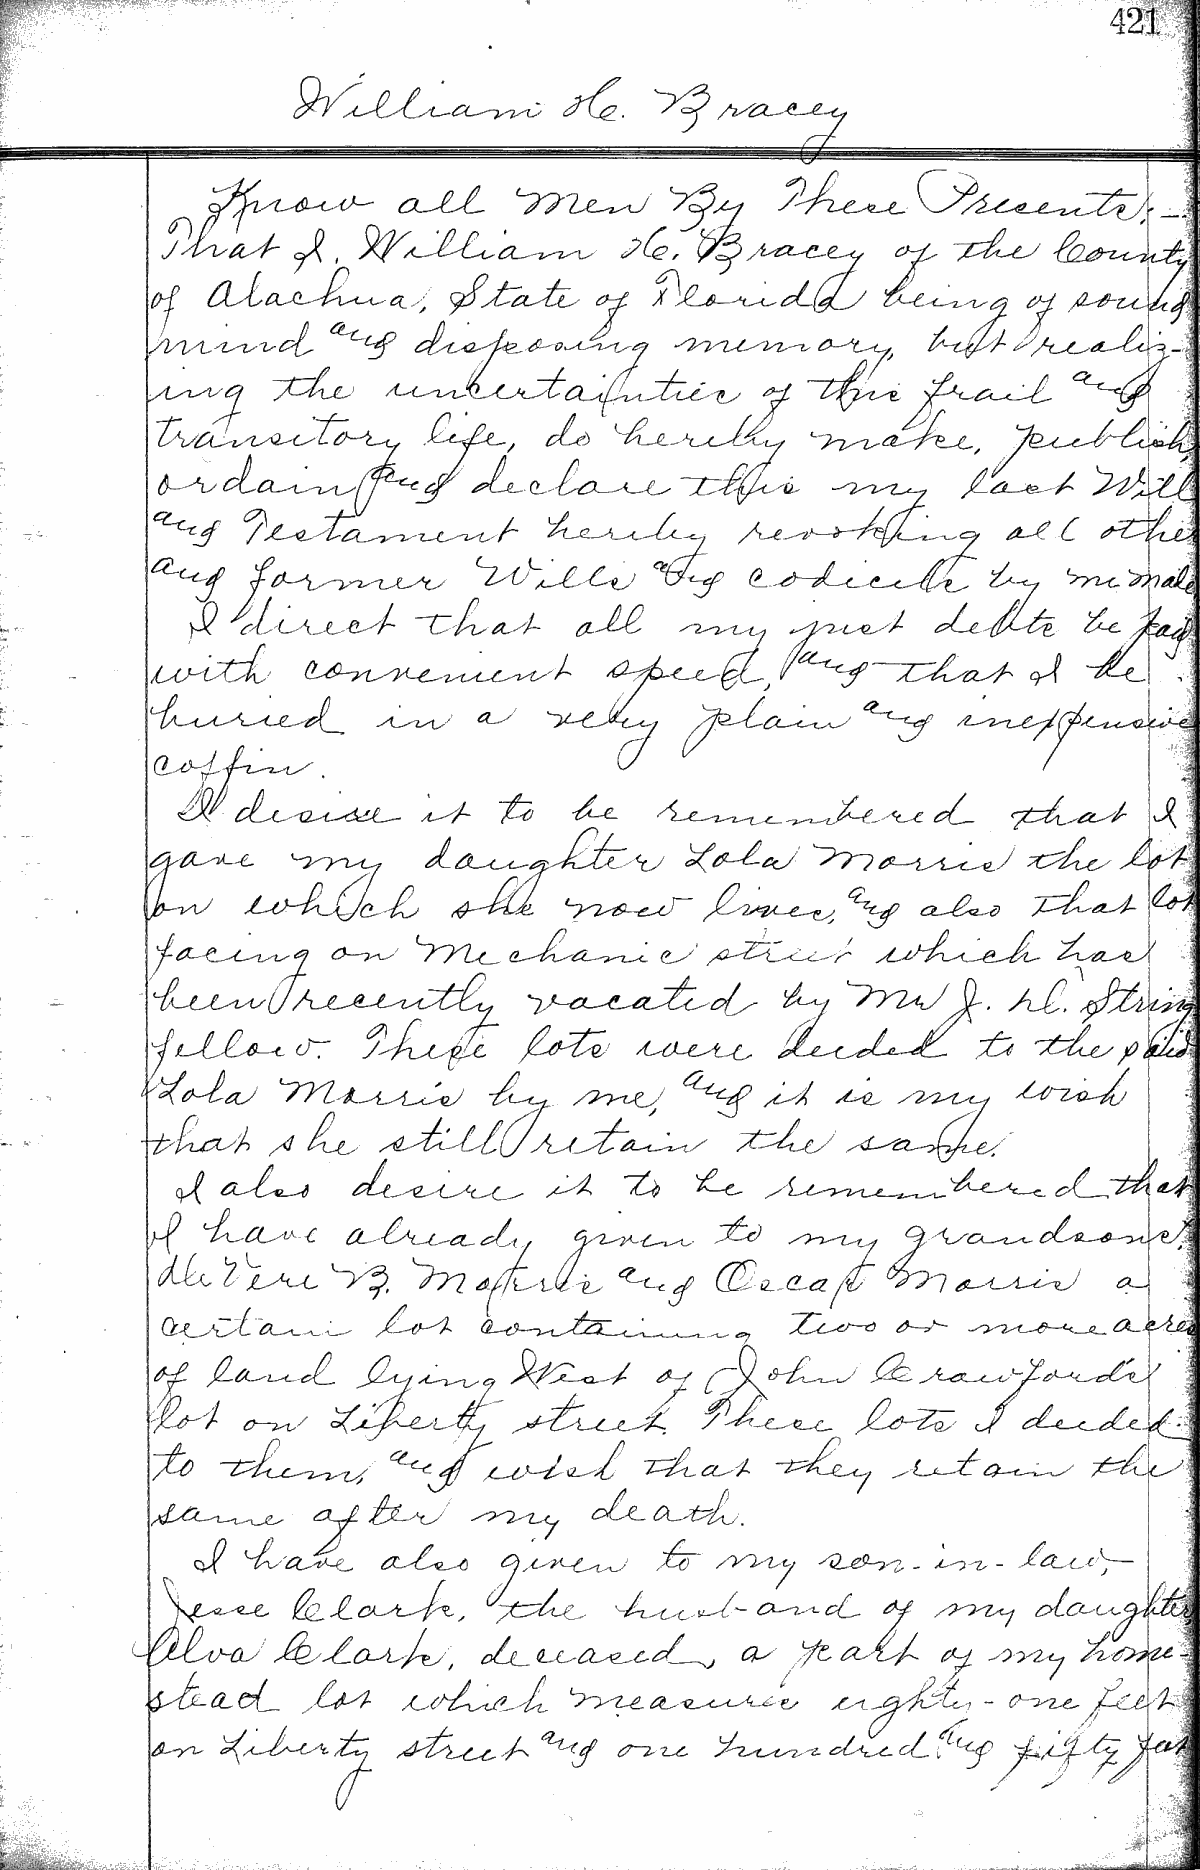 421
William H. Bracey
Know all Men By These Presents:-
That I, William H. Bracey of the County
of Alachua, State of Florida being of sound
mind and disposing memory, but realiz-
ing the uncertainties of this frail and
transitory life, do hereby make, publish,
ordain and declare this my last Will
and Testament hereby revoking all other
and former Wills and codicils by me made
I direct that all my just debts be paid
with convenient speed, and that I be
buried in a very plain and inexpensive
coffin.
I desire it to be remembered that I
gave my daughter Lola Morris the lot
on which she now lives, and also that lot
facing on Mechanic street which has
been recently vacated by Mr J. H. String
fellow. These lots were deeded to the said
Lola Morris by me, and it is my wish
that she still retain the same.
I also desire it to be remembered that
I have already given to my grandsons,
DeVere B. Morris and Oscar Morris a
certain lot containing two or more acres
of land lying West of John Crawford's
lot on Liberty street. These lots I deeded
to them, and wish that they retain the
same after my death.
I have also given to my son-in-law,
Jesse Clark, the husband of my daughter,
Alva Clark, deceased, a part of my home-
stead lot which measures eighty-one feet
on Liberty street and one hundred and fifty feet